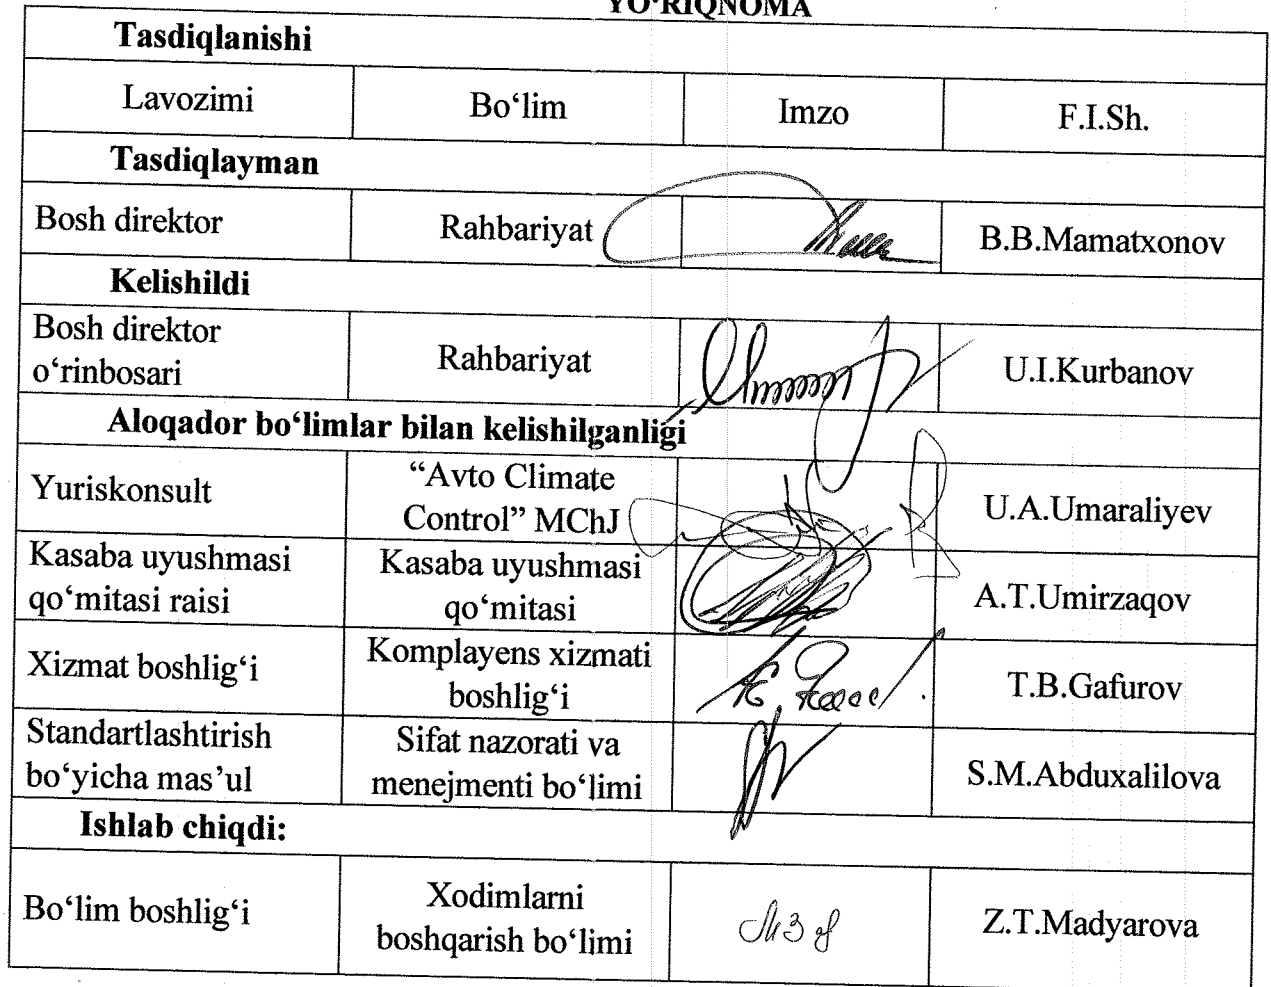 YO‘RIQNOMA
Tasdiqlanishi
Lavozimi Bo‘lim Imzo F.I.Sh.
Tasdiqlayman
Bosh direktor Rahbariyat B.B.Mamatxonov
Kelishildi
Bosh direktor
o‘rinbosari Rahbariyat U.I.Kurbanov
Aloqador bo‘limlar bilan kelishilganligi
Yuriskonsult “Avto Climate
Control” MChJ U.A.Umaraliyev
Kasaba uyushmasi
qo‘mitasi raisi Kasaba uyushmasi
qo‘mitasi A.T.Umirzaqov
Xizmat boshlig‘i Komplayens xizmati
boshlig‘i T.B.Gafurov
Standartlashtirish
bo‘yicha mas’ul Sifat nazorati va
menejmenti bo‘limi S.M.Abduxalilova
Ishlab chiqdi:
Bo‘lim boshlig‘i Xodimlarni
boshqarish bo‘limi Z.T.Madyarova